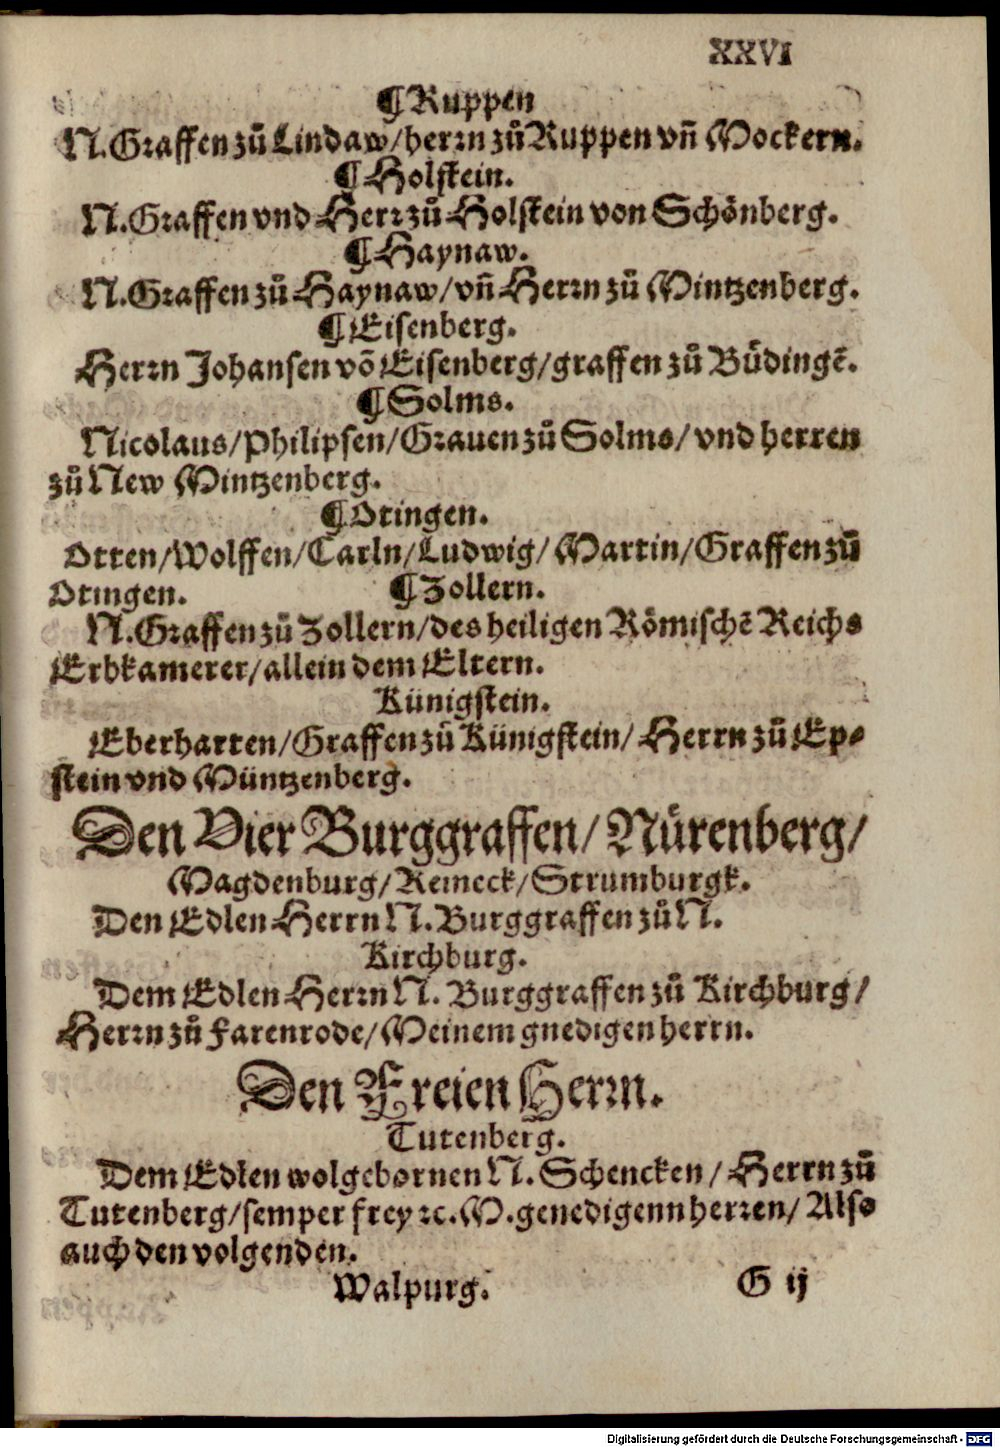 XXVI
¶Ruppen
N. Graffen zů Lindaw/herrn zů Ruppen vñ Mockern.
¶Holstein.
N. Graffen vnd Herr zů Holstein von Schönberg.
¶Haynaw.
N. Graffen zů Haynaw/vñ Herrn zů Mintzenberg.
¶Eisenberg.
Herrn Johansen võ Eisenberg/graffen zů Büdingẽ.
¶Solms.
Nicolaus/Philipsen/Grauen zů Solms/vnd herren
zů New Mintzenberg.
¶Otingen.
Otten/Wolffen/Carln/Ludwig/Martin/Graffen zů
Otingen. ¶Zollern.
N. Graffen zů Zollern/des heiligen Römischẽ Reichs
Erbkamerer/allein dem Eltern.
Künigstein.
Eberharten/Graffen zů Künigstein/Herrn zů Ep-
stein vnd Müntzenberg.
Den Vier Burggraffen/Nürenberg/
Magdenburg/Reineck/Strumburgk.
Den Edlen Herrn N. Burggraffen zů N.
Kirchburg.
Dem Edlen Herrn N. Burggraffen zů Kirchburg/
Herrn zů Farenrode/Meinem gnedigen herrn.
Den Freien Herrn.
Tutenberg.
Dem Edlen wolgebornen N. Schencken/Herrn zů
Tutenberg/semper frey ꝛc. M. genedigenn herren/Also
auch den volgenden.
Walpurg. G ij
Digitalisierung gefördert durch die Deutsche Forschungsgemeinschaft - DFG